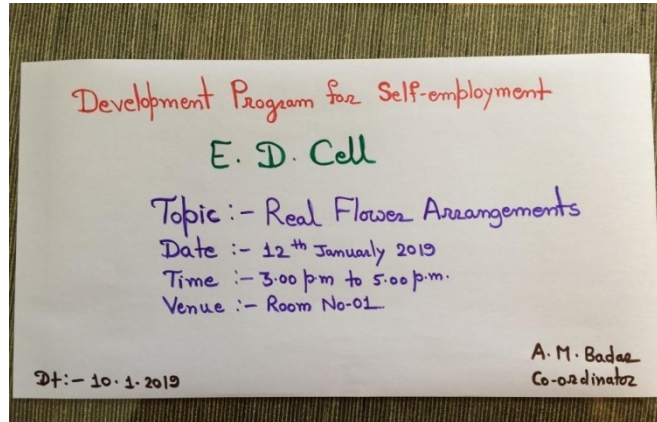 Development Program for Self-employment
E. D. Cell
Topic :- Real Flower Arrangements
Date :- 12th Januarly 2019
Time :- 3.00 p.m to 5.00 p.m.
Venue :- Room No-01
A. M. Badar
Dt:- 10.1.2019
Co-ordinator